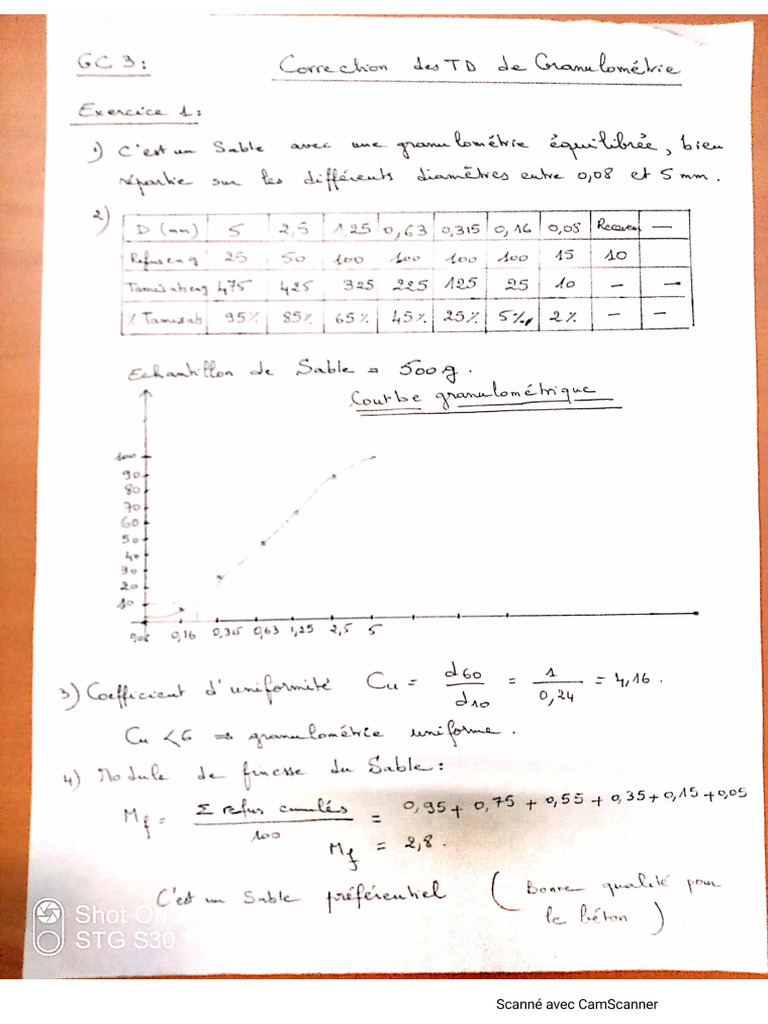 GC 3 :
Correction des TD de Granulométrie
Exercice 1 :
1) C'est un Sable avec une granulométrie équilibrée, bien
répartie sur les différents diamètres entre 0,08 et 5 mm.
2)
D (mm) 5 2,5 1,25 0,63 0,315 0,16 0,08 —
Refus en g 25 50 100 100 100 100 15 10
Tamisat en g 475 425 325 225 125 25 10 — —
% Tamisat 95% 85% 65% 45% 25% 5% 2% — —
Echantillon de Sable = 500g.
Courbe granulométrique
100
90
80
70
60
50
40
30
20
10
0,16 0,315 0,63 1,25 2,5 5
3) Coefficient d'uniformité Cu = d60 / d10 = 1 / 0,24 = 4,16.
Cu < 6 ⇒ granulométrie uniforme.
4) Module de finesse du Sable :
Mf = Σ refus cumulés / 100 = 0,95 + 0,75 + 0,55 + 0,35 + 0,15 + 0,05
Mf = 2,8.
C'est un Sable préférentiel ( Bonne qualité pour
le béton )
Shot On
STG S30
Scanné avec CamScanner